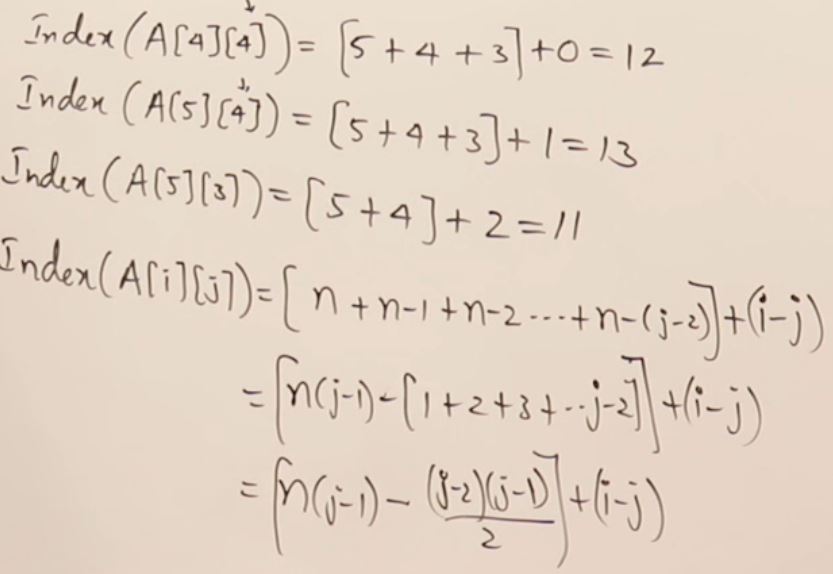 Index(A[4][4]) = [5+4+3]+0 = 12
Index(A[5][4]) = [5+4+3]+1 = 13
Index(A[5][3]) = [5+4]+2 = 11
Index(A[i][j]) = [n+n-1+n-2---+n-(j-2)]+(i-j)
= [n(j-1)-[1+2+3+--j-2]]+(i-j)
= [n(j-1) - (j-2)(j-1)/2]+(i-j)